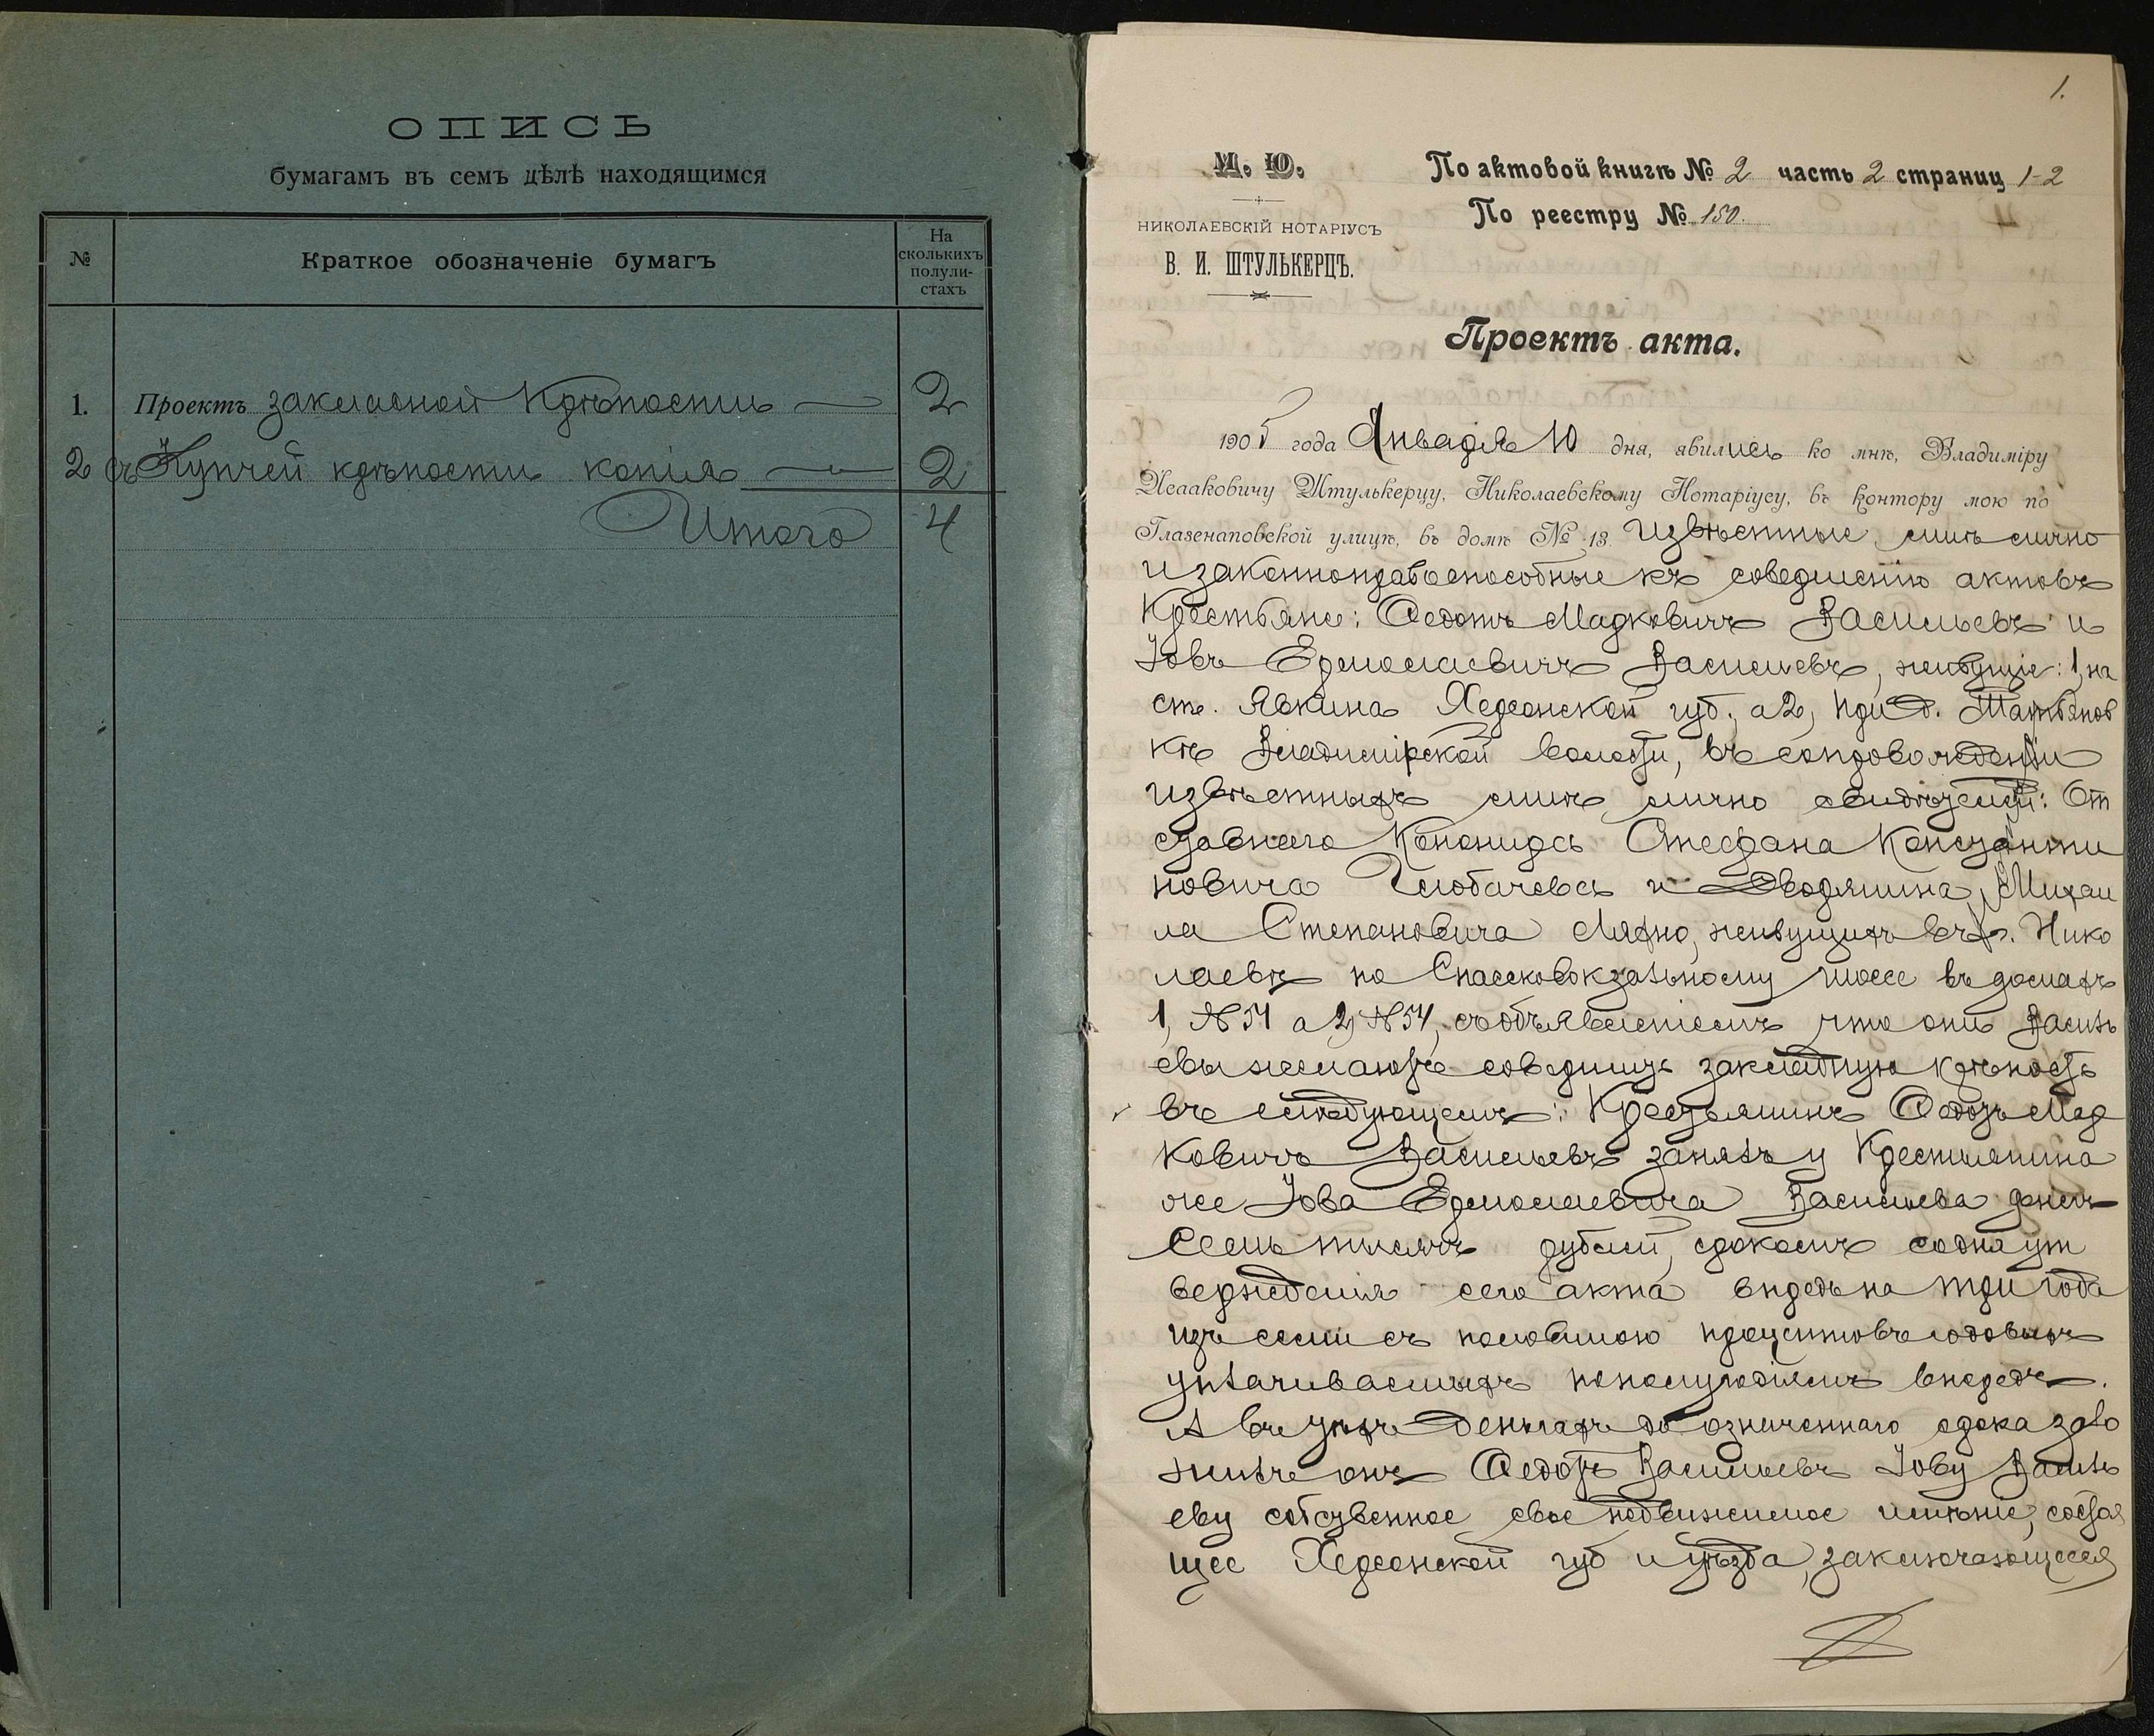 ОПИСЬ
бумагамъ въ семъ дѣлѣ находящимся
№
Краткое обозначеніе бумагъ
На
сколькихъ
полули-
стахъ
1. Проектъ закладной крѣпости — 2
2 съ Купчей крѣпости копія — 2
Итого 4
1.
М. Ю.
НИКОЛАЕВСКІЙ НОТАРІУСЪ
В. И. ШТУЛЬКЕРЦЪ.
По актовой книгѣ № 2 часть 2 страниц 1-2
По реестру № 150.
Проектъ акта.
1905 года Января 10 дня, явились ко мнѣ, Владиміру
Исааковичу Штулькерцу, Николаевскому Нотаріусу, въ контору мою по
Глазенаповской улицѣ, въ домѣ № 13. извѣстные мнѣ лично
и законноправоспособные къ совершенію актовъ
Крестьяне: Федотъ Марковичъ Васильевъ и
Іовъ Ермолаевичъ Васильевъ, живущіе: 1, на
ст. Явкина Херсонской губ., а 2, при д. Татьянов
кѣ Владимірской волости, въ сопровожденіи
извѣстныхъ мнѣ лично свидѣтелей: От
ставного Стефана Константи
новича и Дворянина Михаи
ла Степановича Ляхно, живущихъ въ г. Нико
лаевѣ по Спассковокзальному шоссе въ домахъ
1, № 54 а 2, № 54, съ объявленіемъ что они Василь
евы желаютъ совершить закладную крѣпость
въ слѣдующемъ: Крестьянинъ Федотъ Мар
ковичъ Васильевъ занялъ у Крестьянина
же Іова Ермолаевича Васильева денегъ
семь тысячъ рублей, срокомъ со дня ут
вержденія сего акта впредь на три года
изъ семи съ половиною процентовъ годовыхъ
уплачиваемыхъ по полугодіямъ впередъ.
А въ тѣхъ деньгахъ до означеннаго срока зало
жилъ онъ Федотъ Васильевъ Іову Василь
еву собственное свое недвижимое имѣніе, состоя
щее Херсонской губ и уѣзда, заключающееся